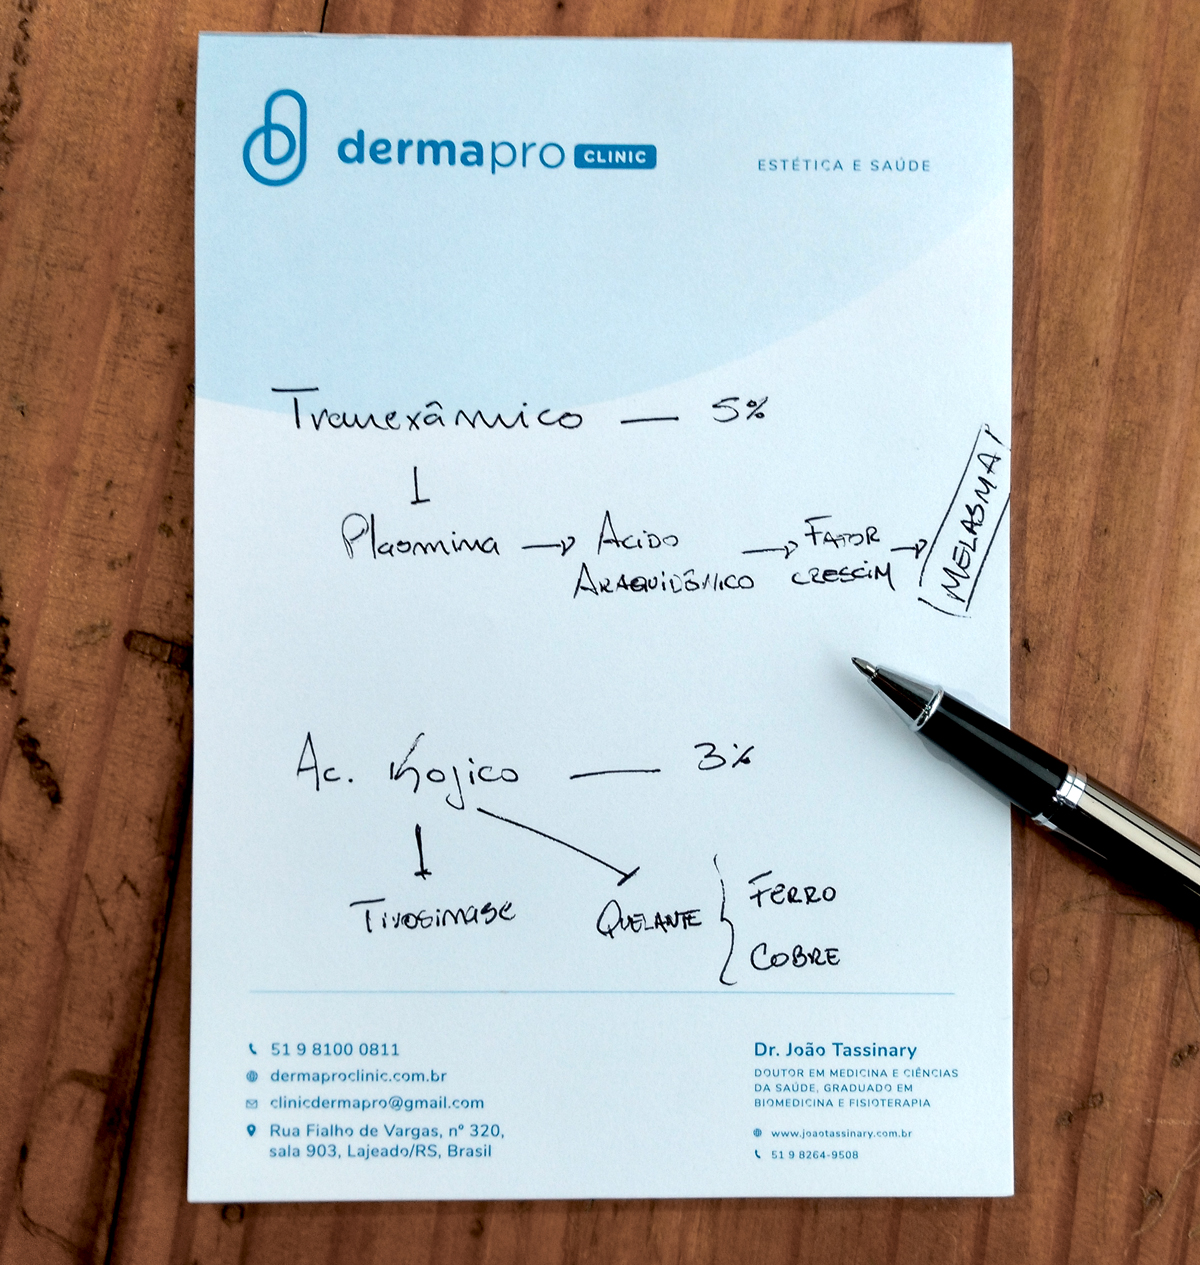 dermapro CLINIC
ESTÉTICA E SAÚDE
Tranexâmico — 5%
Plasmina → Ácido Araquidônico → Fator crescim → MELASMA
Ac. Kojico — 3%
Tirosinase
QUELANTE { FERRO
COBRE
51 9 8100 0811
dermaproclinic.com.br
clinicdermapro@gmail.com
Rua Fialho de Vargas, nº 320,
sala 903, Lajeado/RS, Brasil
Dr. João Tassinary
DOUTOR EM MEDICINA E CIÊNCIAS
DA SAÚDE, GRADUADO EM
BIOMEDICINA E FISIOTERAPIA
www.joaotassinary.com.br
51 9 8264-9508